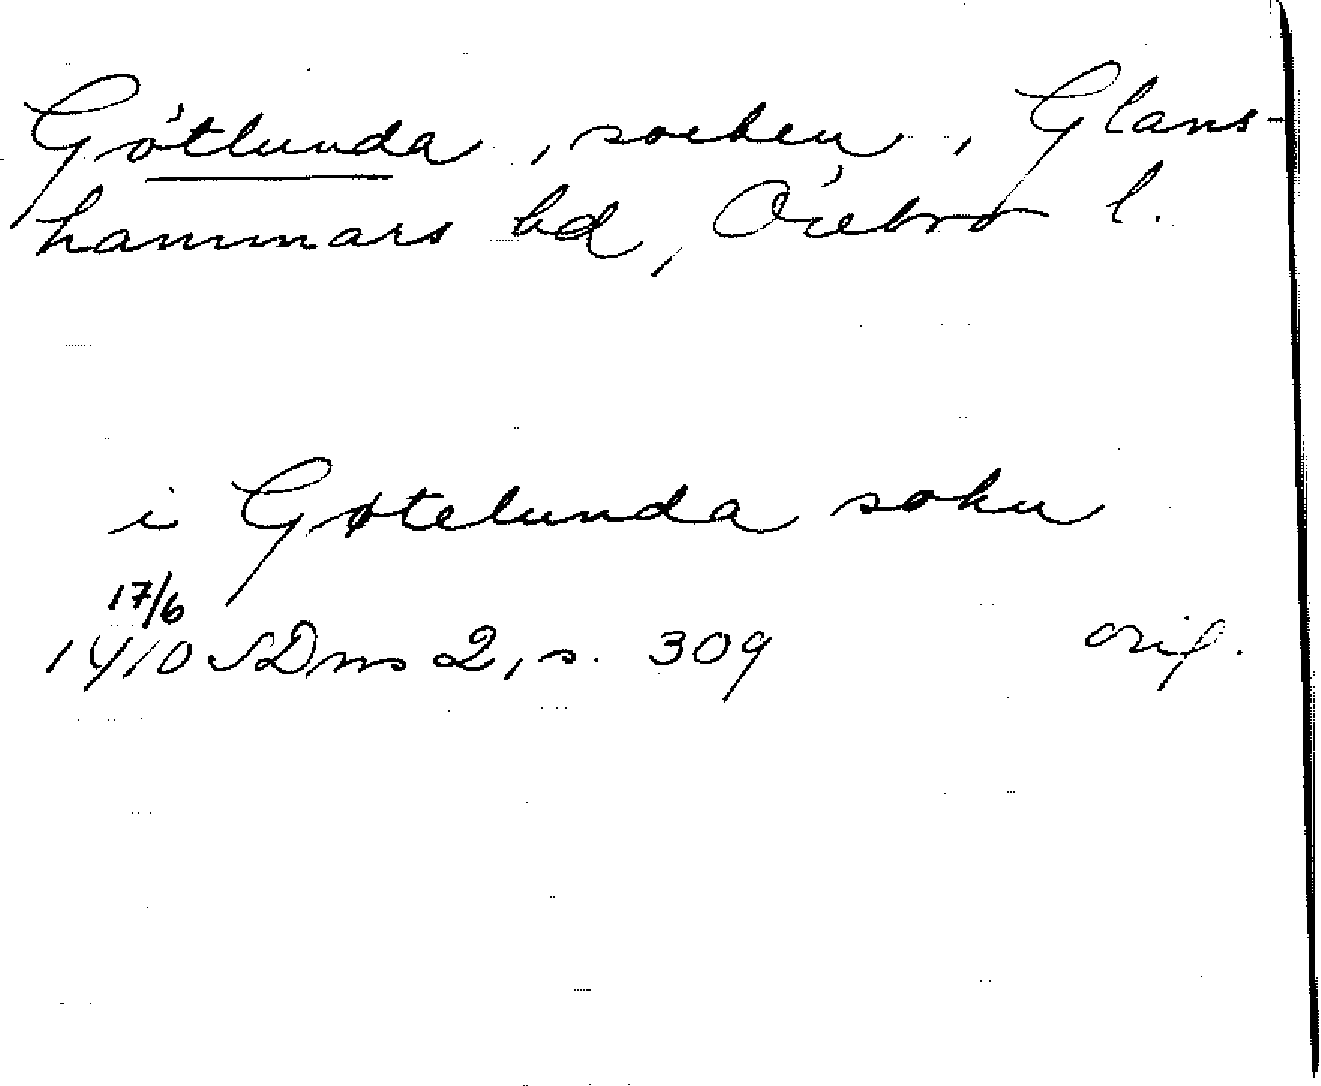 Götlunda, socken, Glans-
hammars hd, Örebro l.
i Gøtelunda sokn
17/6
1410 SDns 2, s. 309 orig.